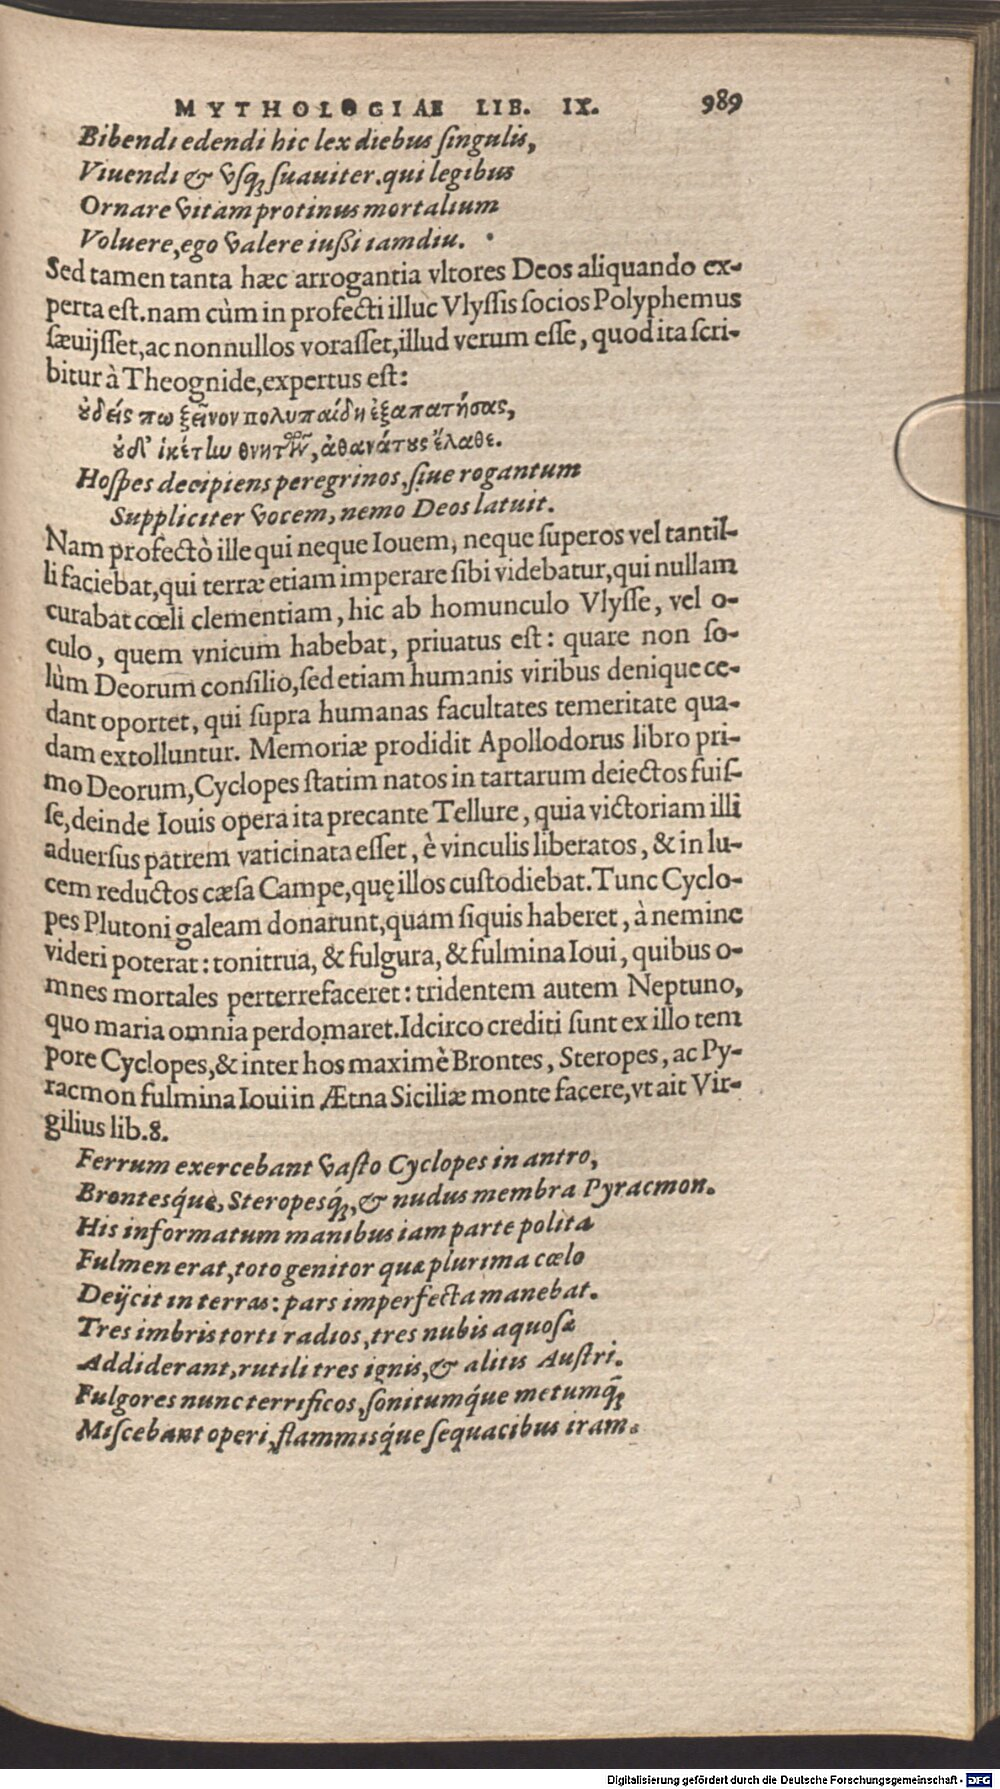 MYTHOLOGIAE LIB. IX. 989
Bibendi edendi hic lex diebus ſingulis,
Viuendi & vſq; ſuauiter. qui legibus
Ornare vitam protinus mortalium
Voluere, ego valere iußi iamdiu.
Sed tamen tanta hæc arrogantia vltores Deos aliquando ex-
perta est. nam cùm in profecti illuc Vlyſſis ſocios Polyphemus
ſæuijſſet, ac nonnullos voraſſet, illud verum eſſe, quod ita ſcri-
bitur à Theognide, expertus eſt:
ȣδείς πω ξεῖνον πολυπαίδη ἐξαπατήσας,
ȣδ’ ἱκέτην θνητῶν, ἀθανάτȣς ἔλαθε.
Hoſpes decipiens peregrinos, ſiue rogantum
Suppliciter vocem, nemo Deos latuit.
Nam profectò ille qui neque Iouem, neque ſuperos vel tantil-
li faciebat, qui terræ etiam imperare ſibi videbatur, qui nullam
curabat cœli clementiam, hic ab homunculo Vlyſſe, vel o-
culo, quem vnicum habebat, priuatus eſt: quare non ſo-
lùm Deorum conſilio, ſed etiam humanis viribus denique ce-
dant oportet, qui ſupra humanas facultates temeritate qua-
dam extolluntur. Memoriæ prodidit Apollodorus libro pri-
mo Deorum, Cyclopes ſtatim natos in tartarum deiectos fuiſ-
ſe, deinde Iouis opera ita precante Tellure, quia victoriam illi
aduerſus patrem vaticinata eſſet, è vinculis liberatos, & in lu-
cem reductos cæſa Campe, quę illos cuſtodiebat. Tunc Cyclo-
pes Plutoni galeam donarunt, quam ſiquis haberet, à nemine
videri poterat: tonitrua, & fulgura, & fulmina Ioui, quibus o-
mnes mortales perterrefaceret: tridentem autem Neptuno,
quo maria omnia perdomaret. Idcirco crediti ſunt ex illo tem
pore Cyclopes, & inter hos maximè Brontes, Steropes, ac Py-
racmon fulmina Ioui in Ætna Siciliæ monte facere, vt ait Vir-
gilius lib. 8.
Ferrum exercebant vaſto Cyclopes in antro,
Brontesq́ue, Steropesq́;, & nudus membra Pyracmon.
His informatum manibus iam parte polita
Fulmen erat, toto genitor quæ plurima cœlo
Deijcit in terras: pars imperfecta manebat.
Tres imbris torti radios, tres nubis aquoſæ
Addiderant, rutili tres ignis, & alitis Auſtri.
Fulgores nunc terrificos, ſonitumq́ue metumq́;
Miſcebant operi, flammisq́ue ſequacibus iram.
Digitalisierung gefördert durch die Deutsche Forschungsgemeinschaft - DFG